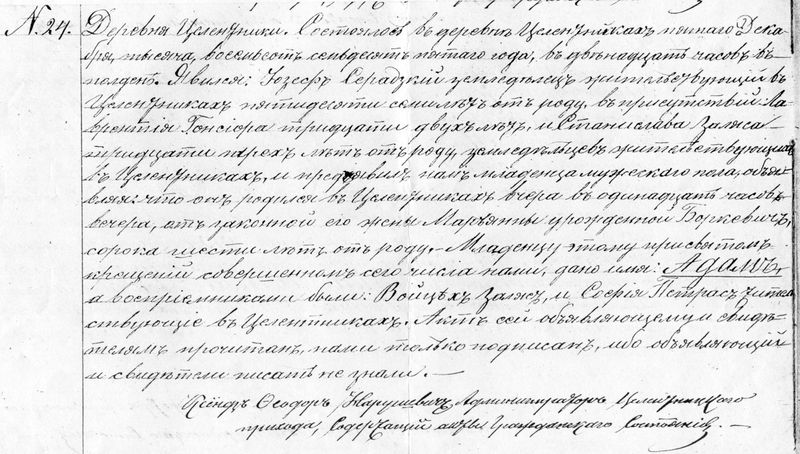 N. 24. Деревня Целентники. Состоялось въ деревнѣ Целентникахъ пятаго Дека-
бря, тысяча, восемьсотъ семьдесятъ пятаго года, въ двѣнадцать часовъ въ
полдень. Явился: Іозефъ Серадзкій земледѣлецъ жительствующій въ
Целентникахъ пятидесяти семи лѣтъ отъ роду, въ присутствіи: Ла-
врентія Гонсіора тридцати двухъ лѣтъ, и Станислава Заляса
тридцати трехъ лѣтъ отъ роду, земледѣльцевъ жительствующихъ
въ Целентникахъ, и предъявилъ намъ младенца мужескаго пола, объя-
вляя: что онъ родился въ Целентникахъ вчера въ одинадцать часовъ
вечера, отъ законной его жены Маріянны урожденной Боркевичъ,
сорока шести лѣтъ отъ роду. Младенцу этому при святомъ
крещеніи совершенномъ сего числа нами, дано имя: Адамъ,
а воспріемниками были: Войцѣхъ Залясъ, и Софія Петрасъ житель-
ствующіе въ Целентникахъ. Актъ сей объявляющему и свидѣ-
телямъ прочитанъ, нами только подписанъ, ибо объявляющій
и свидѣтели писать не знали.
Ксендзъ Ѳеодоръ Нарушевичъ Администраторъ Целентницкаго
прихода, Содержащій акты Гражданскаго Состоянія.